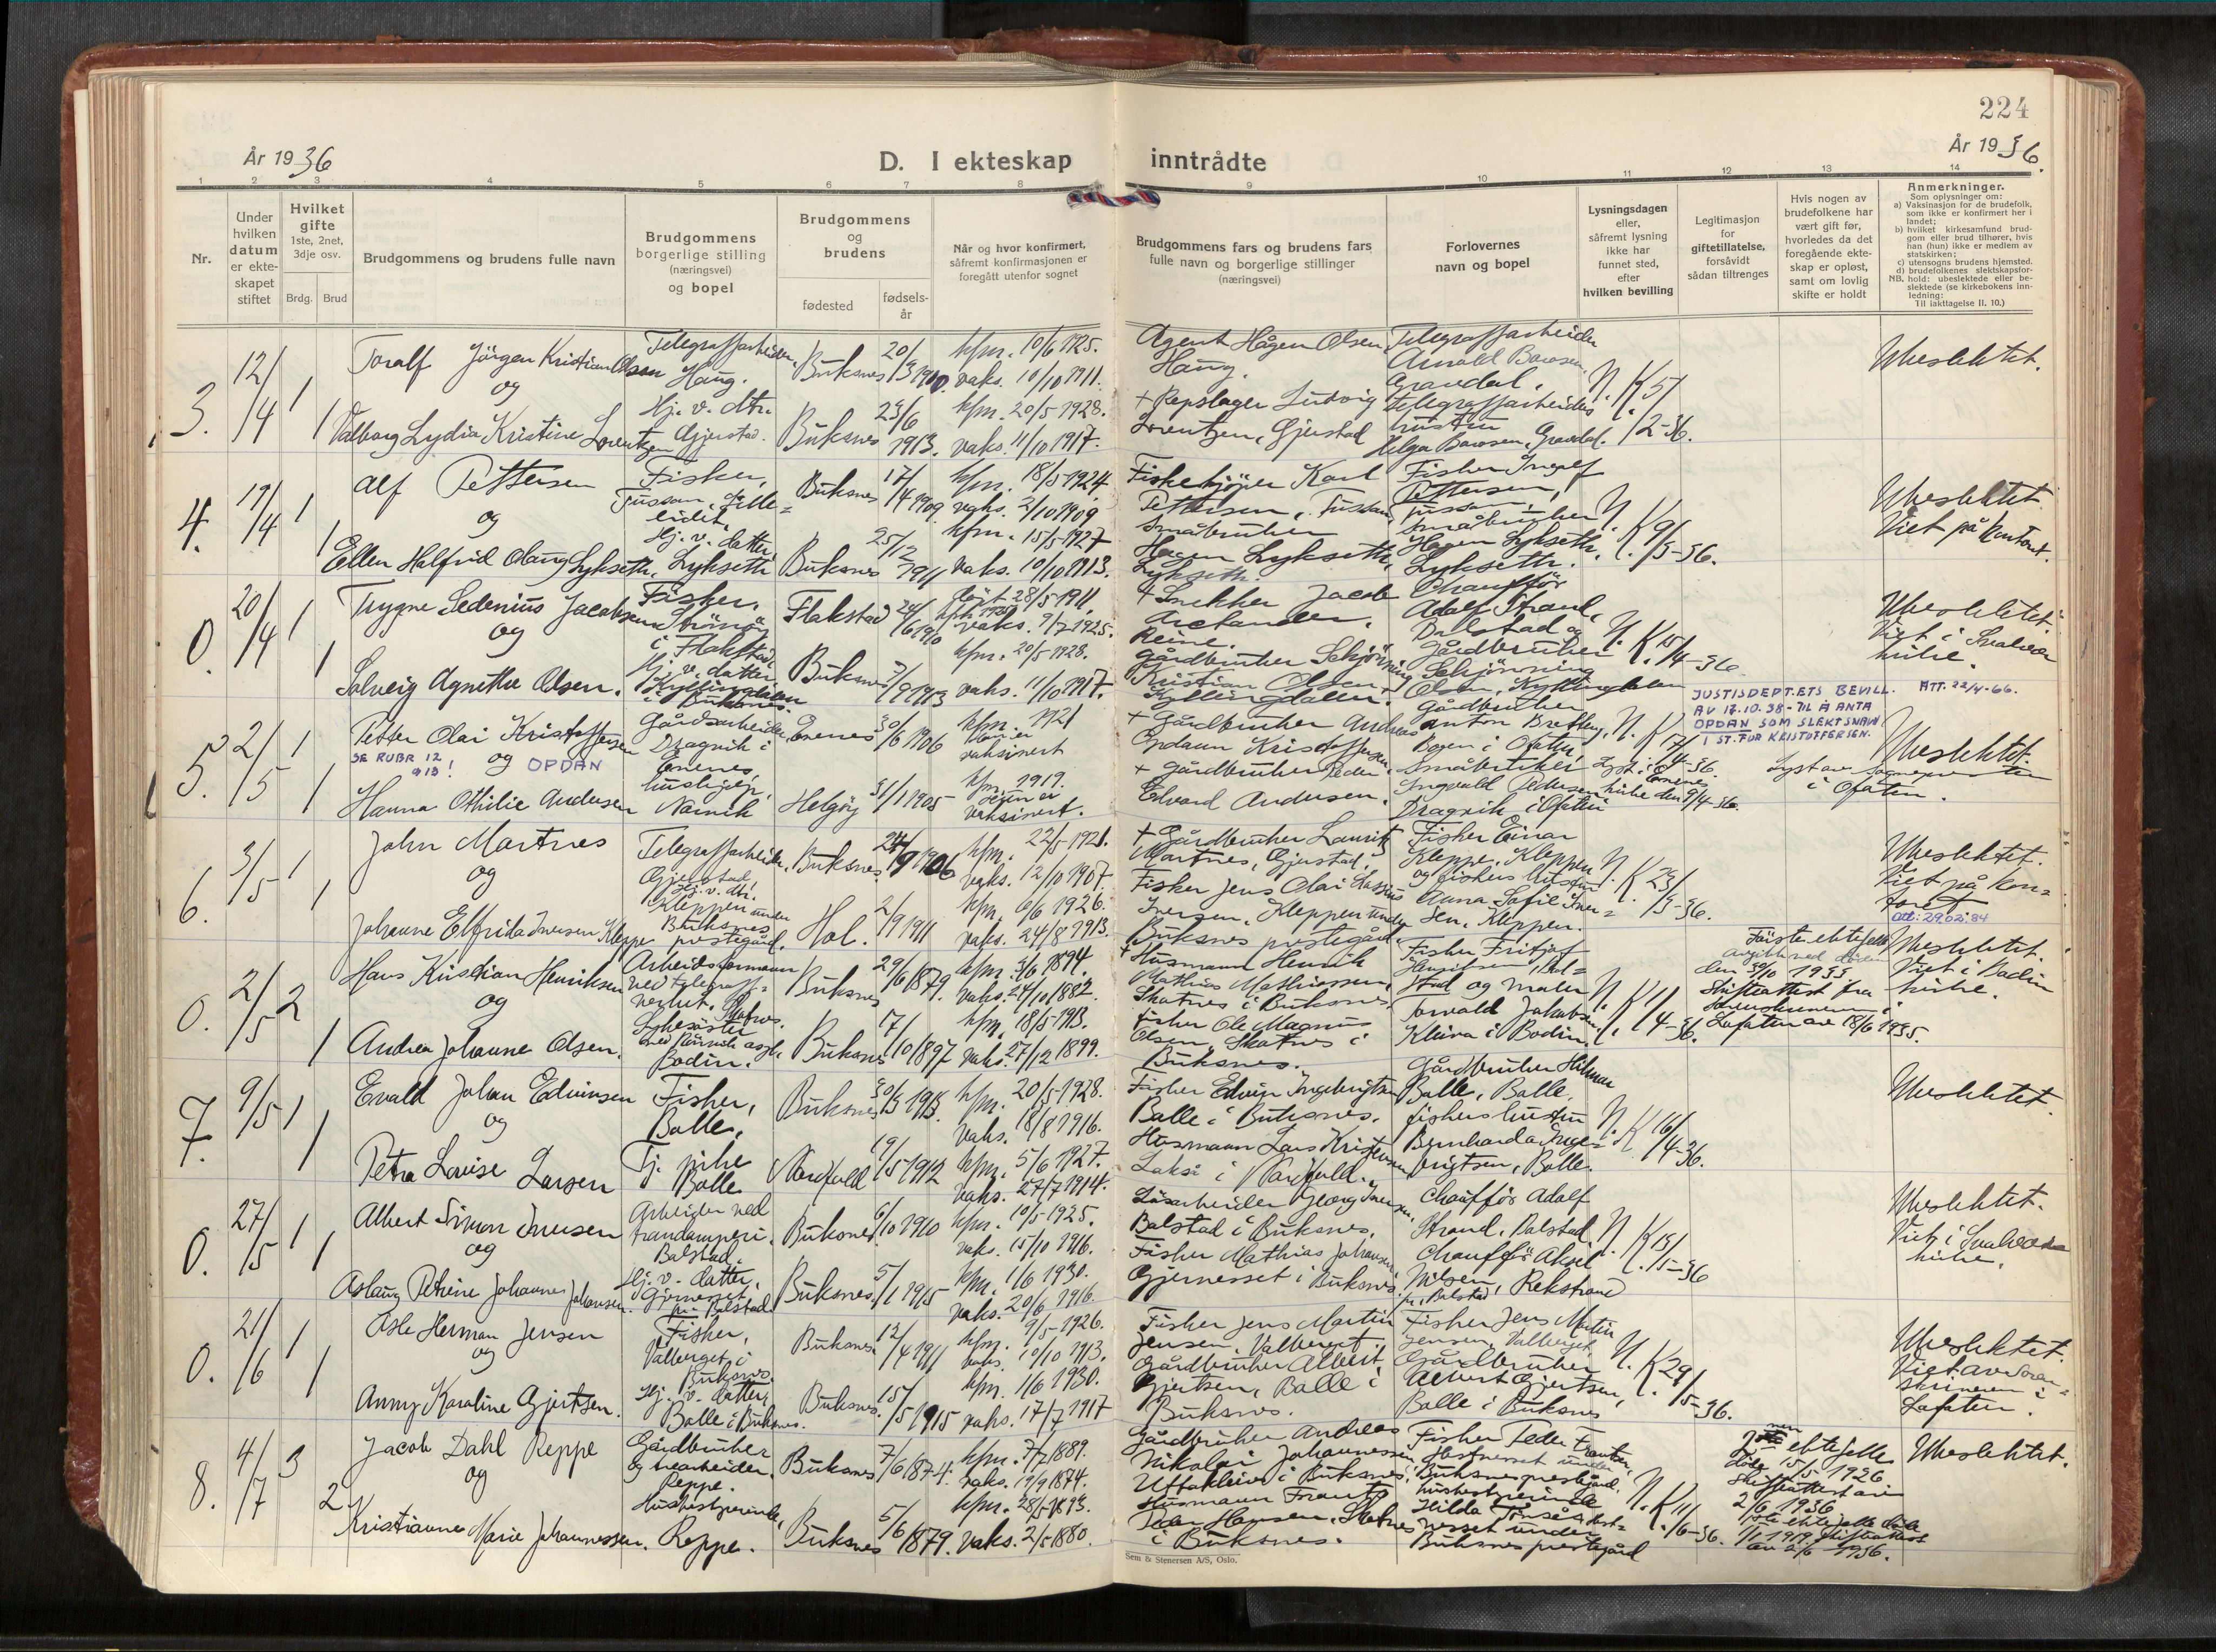 224
År 1936
D. I ekteskap inntrådte
År 1936.
1 2 3 4 5 6 7 8 9 10 11 12 13 14
Nr.
Under
hvilken
datum
er ekte-
skapet
stiftet
Hvilket
gifte
1ste, 2net,
3dje osv.
Brdg. Brud
Brudgommens og brudens fulle navn
Brudgommens
borgerlige stilling
(næringsvei)
og bopel
Brudgommens
og
brudens
fødested
fødsels-
år
Når og hvor konfirmert,
såfremt konfirmasjonen er
foregått utenfor sognet
Brudgommens fars og brudens fars
fulle navn og borgerlige stillinger
(næringsvei)
Forlovernes
navn og bopel
Lysningsdagen
eller,
såfremt lysning
ikke har
funnet sted,
efter
hvilken bevilling
Legitimasjon
for
giftetillatelse,
forsåvidt
sådan tiltrenges
Hvis nogen av
brudefolkene har
vært gift før,
hvorledes da det
foregående ekte-
skap er opløst,
samt om lovlig
skifte er holdt
Anmerkninger.
Som oplysninger om:
a) Vaksinasjon for de brudefolk,
som ikke er konfirmert her i
landet;
b) hvilket kirkesamfund brud-
gom eller brud tilhører, hvis
han (hun) ikke er medlem av
statskirken;
c) utensogns brudens hjemsted.
d) brudefolkenes slektskapsfor-
NB. hold: ubeslektede eller be-
slektede (se kirkebokens inn-
ledning:
Til iakttagelse II. 10.)
3. 12/4 1 1
Toralf Jörgen Kristian Olsen
og
Valborg Lydia Kristine Lorentzen
Telegrafarbeider,
Haug.
Hj. v. dtr.
Gjerstad.
Buksnes 20/3 1910.
Buksnes 23/6 1913.
kfm. 10/6 1925.
vaks. 10/10 1911.
kfm. 20/5 1928.
vaks. 11/10 1917.
Agent Hågen Olsen,
Haug.
+ Repslager Ludvig
Lorentzen, Gjerstad
Telegrafarbeider
Arnold
Gravdal.
Telegrafarbeider
hustru
Helga Gravdal.
N. K. 5/2-36.
Ubeslektet.
4. 19/4 1 1
Alf Pettersen
og
Ellen Halfrid Haug Lyksetth.
Fisker,
Hj. v. datter,
Lyksetth
Buksnes 17/4 1909.
Buksnes 25/12 1911
kfm. 18/5 1924
vaks. 2/10 1909
kfm. 15/5 1927
vaks. 10/10 1913.
Fiskekjöper Karl
Pettersen,
Småbruker
Hagen Lyksetth,
Lyksetth.
Fisker Ingolf
Pettersen,
Småbruker
Hagen Lyksetth,
Lyksetth.
N. K. 9/3-36.
Ubeslektet.
Viet på kontoret.
0. 20/4 1 1
Trygve Sedenius Jacobsen
og
Solveig Agnethe Olsen.
Fisker,
i Flakstad,
Hj. v. datter,
Kyllingdalen
i Buksnes.
Flakstad 24/6 1910
Buksnes 3/9 1913
28/5 1911
vaks. 9/7 1925.
kfm. 20/5 1928.
vaks. 11/10 1917.
+ Snekker Jacob
Reine.
Gårdbruker Schjönning
Kristian Olsen,
Kyllingdalen.
Chauffør
Adolf Strand,
Balstad og
Gårdbruker
Schjönning
Olsen, Kyllingdalen
N. K. 15/4-36
Ubeslektet.
Viet i Svolvær
kirke.
5. 2/5 1 1
Petter Olai Kristoffersen
SE RUBR 12
og 13! og OPDAN
Hanna Othilie Andersen
Gårdsarbeider,
Dragvik i
Evenes
Narvik
Evenes 30/6 1906
Helgöy 31/1 1905
kfm. 1921
vaksinert
kfm. 1919.
vaksinert.
+ Gårdbruker Andreas
Opdann Kristoffersen,
+ Gårdbruker Peder
Edvard Andersen.
Gårdbruker
Anton
Bogen i Ofoten,
Småbruker
Ingvald Pedersen
Dragvik i Ofoten
N. K. 17/4-36.
Lyst i Evenes
kirke den 9/4-36.
JUSTISDEPT.ETS BEVILL.
AV 17.10.38 - TIL Å ANTA
OPDAN SOM SLEKTSNAVN
I ST. FOR KRISTOFFERSEN.
ATT. 22/4-66.
Ubeslektet.
Lyst av sognepresten
i Ofoten.
6. 3/5 1 1
John Martnes
og
Johanne Elfrida Iversen Kleppe
Telegrafarbeider,
Gjerstad
Hj. v. dtr.
Kleppen under
Buksnes
prestegård.
Buksnes. 24/9 1906
Hol. 2/9 1911
kfm. 22/5 1921.
vaks. 12/10 1907.
kfm. 6/6 1926.
vaks. 24/8 1913.
+ Gårdbruker Lauritz
Martnes, Gjerstad.
Fisker Jens Olai
Iversen, Kleppen under
Buksnes prestegård
Fisker Einar
Kleppe, Kleppen
og fiskers hustru
Anna Sofie Iver=
sen, Kleppen.
N. K. 23/3-36.
Ubeslektet.
Viet på kon=
toret
att: 29.02.84
0. 2/5 2 1
Hans Kristian Henriksen
og
Andrea Johanne Olsen.
Arbeidsformann
ved telegraf=
verket,
Sykesöster
Bodin.
Buksnes 29/6 1879.
Buksnes 17/10 1897
kfm. 3/6 1894.
vaks. 24/10 1882.
kfm. 18/5 1913.
vaks. 27/12 1899.
+ Husmann Henrik
Mathias Mathiassen,
Skotnes i Buksnes
Fisker Ole Magnus
Olsen, Skotnes i
Buksnes.
Fisker Fritjof
Henriksen, Bal=
stad og maler
Torvald Jakobsen,
i Bodin.
N. K. 1/4-36.
Første ektefelle
avgikk ved döden
den 30/10 1933
Skifteattest fra
Sorenskriveren i
Lofoten av 18/6 1935.
Ubeslektet.
Viet i Bodin
kirke.
7. 9/5 1 1
Evald Johan Edvinsen
og
Petra Lovise Larsen
Fisker,
Balle,
Tj. pike
Balle
Buksnes 30/3 1913.
Nordfold 19/5 1912
kfm. 20/5 1928.
vaks. 18/8 1916.
kfm. 5/6 1927.
vaks. 27/7 1914.
Fisker Edvin Ingebrigtsen
Balle i Buksnes.
Husmann Lars Kristensen
i Nordfold.
Gårdbruker Hilmar
Balle, Balle.
fiskers hustru
Bernharda Inge=
brigtsen, Balle.
N. K. 16/4-36.
Ubeslektet.
0. 27/5 1 1
Albert Simon Iversen
og
Aslaug Petrine Johannes Johansen.
Arbeider ved
trandamperi.
Balstad.
Hj. v. datter,
Gjernesset
pr. Balstad
Buksnes 6/10 1910
Buksnes 5/1 1915
kfm. 10/5 1925.
vaks. 15/10 1916.
kfm. 1/6 1930.
vaks. 20/6 1916.
Lösarbeider Georg Iversen,
Balstad i Buksnes.
Fisker Mathias Johansen
Gjernesset i Buksnes.
Chauffør Adolf
Strand, Balstad
Chauffør Aksel
Nilsen, Rekstrand
pr. Balstad
N. K. 13/5-36
Ubeslektet.
Viet i Svolvær
kirke.
0. 21/6 1 1
Asle Herman Jensen
og
Anny Karoline Gjertsen.
Fisker,
Valberget i
Buksnes.
Hj. v. datter,
Balle i Buksnes.
Buksnes. 12/4 1911
Buksnes. 15/5 1915
kfm. 9/5 1926.
vaks. 10/10 1913.
kfm. 1/6 1930.
vaks. 17/7 1917
Fisker Jens Martin
Jensen, Valberget
Gårdbruker Albert
Gjertsen, Balle i
Buksnes.
Fisker Jens Martin
Jensen, Valberget
Gårdbruker
Albert Gjertsen,
Balle i Buksnes
N. K. 29/5-36.
Ubeslektet.
Viet av Soren=
skriveren i
Lofoten.
8. 4/7 3 2
Jacob Dahl Reppe
og
Kristianne Marie Johannessen.
Gårdbruker
og trearbeider,
Reppe.
Husbestyrerinde,
Reppe.
Buksnes 7/6 1874.
Buksnes 5/6 1879.
kfm. 7/7 1889.
vaks. 19/9 1874.
kfm. 28/5 1893.
vaks. 2/5 1880.
Gårdbruker Andreas
Nikolai Johannessen,
Uttakleiv i Buksnes.
Husmann Frantz
Peder Hansen, Skotnes
i Buksnes.
Fisker Peder Frantzen,
under
Buksnes prestegård,
husbestyrerinde
Hilda
nesset under
Buksnes prestegård
N. K. 11/6-36.
ektefelle
döde 15/5 1926
Skifteattest av
2/6 1936
1ste ektefelle döde
1/1 1919. Skifteattest
av 2/6 1936.
Ubeslektet.
Sem & Stenersen A/S, Oslo.